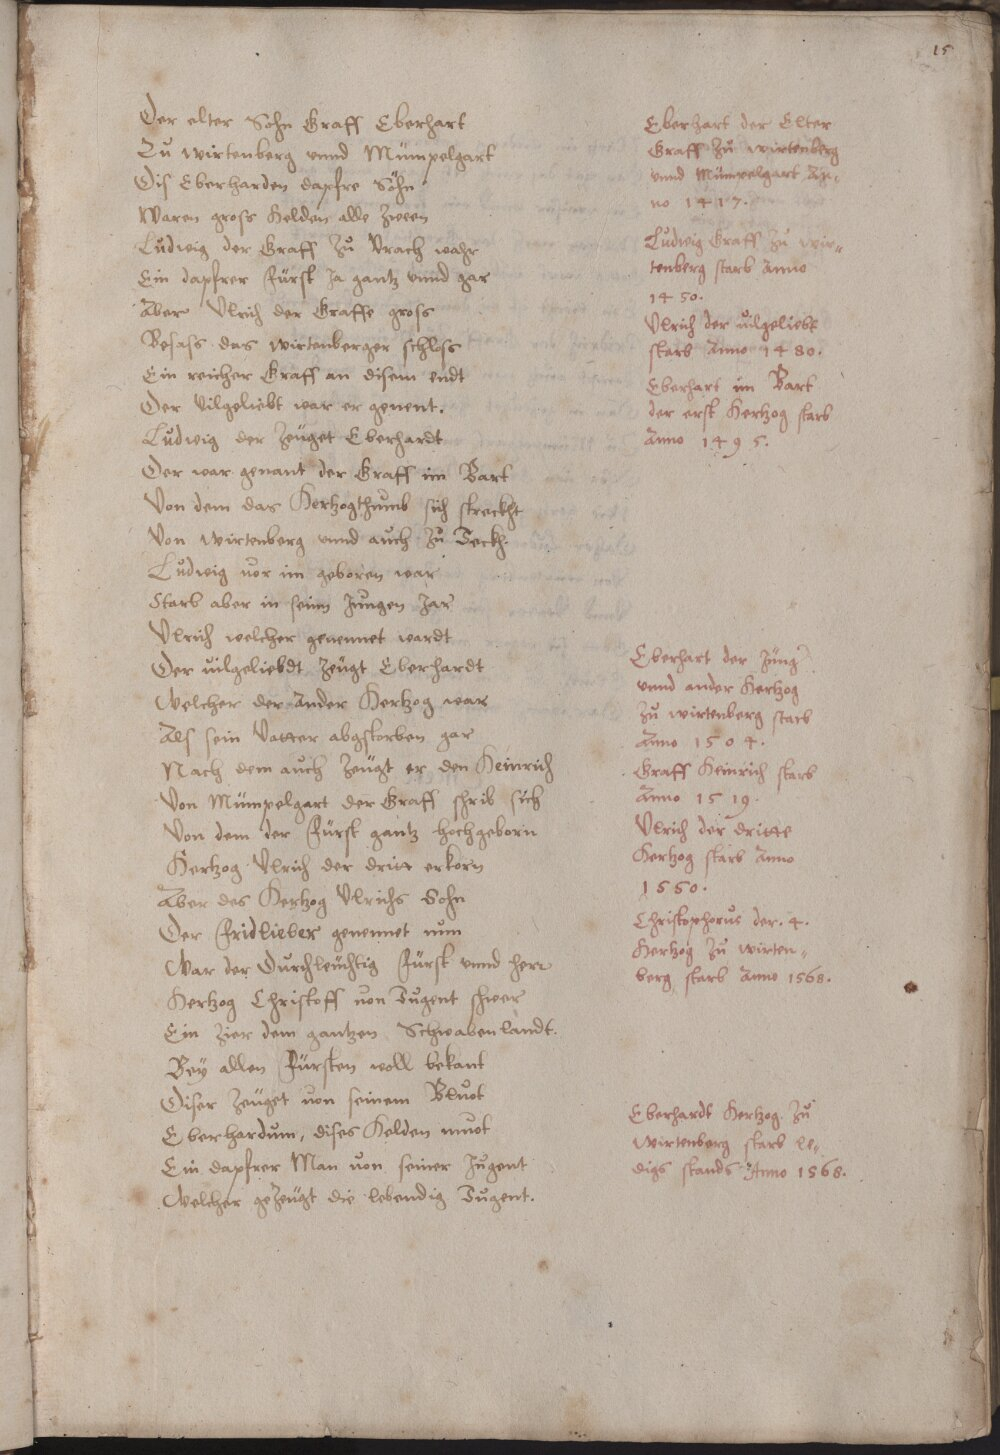 15
Der elter Sohn Graff Eberhart
Zu wirtenberg vnnd Mümpelgart
Dis Eberharden dapfre Söhn
Waren gross Helden alle zween
Ludwig der Graff zu Vrach wahr
Ein dapfrer Fürst Ja gantz vnnd gar
Aber Vlrich der Graffe gross
Besass das wirtenberger schloss
Ein reicher Graff an disem endt
Der vilgeliebt war er genent.
Ludwig der zeüget Eberhardt
Der war genant der Graff im Bart
Von dem das Hertzogthumb sich streckht
Von wirtenberg vnnd auch zu Teckh.
Ludwig vor im geboren war
Starb aber in seinn Jungen Jar
Vlrich welcher genennet wardt
Der vilgeliebdt zeügt Eberhardt
Welcher der Ander Hertzog war
Als sein Vatter abgstorben gar
Nach dem auch zeügt er den Heinrich
Von Mümpelgart der Graff schrib sich
Von dem der Fürst gantz hochgeborn
Hertzog Vlrich der dritt erkorn
Aber des Hertzog Vlrichs Sohn
Der Fridlieber genennet nun
War der Durchleüchtig Fürst vnnd herr
Hertzog Christoff von Tugent schwer
Ein zier dem gantzen Schwabenlandt.
Bey allen Fürsten woll bekant
Diser zeüget von seinem Bluot
Eberhardum, dises Helden muot
Ein dapfrer Man von seiner Jugent
Welcher gezeügt die lebendig Tugent.
Eberhart der Elter
Graff zu wirtenberg
vnnd Mümpelgart An-
no 1417.
Ludwig Graff zu wir-
tenberg starb Anno
1450.
Vlrich der vilgeliebt
starb Anno 1480.
Eberhart im Bart
der erst Hertzog starb
Anno 1495.
Eberhart der Jüng
vnnd ander Hertzog
zu wirtenberg starb
Anno 1504.
Graff Heinrich starb
Anno 1519.
Vlrich der dritte
Hertzog starb Anno
1550.
Christophorus der. 4.
Hertzog zu wirten-
berg starb Anno 1568.
Eberhardt Hertzog zu
Wirtenberg starb le-
digs stands Anno 1568.